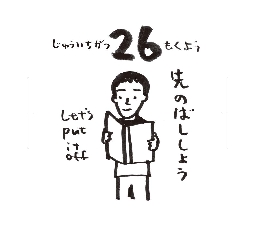 じゅういちがつ 26 もくよう
先のばししよう
Let's
put
it
off